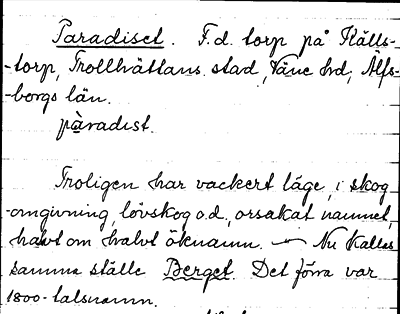 Paradiset. F.d. torp på Källs-
-torp, Trollhättans stad, Väne hd, Älfs-
-borgs län.
pàradist.
Troligen har vackert läge, i skog
-omgivning, lövskog o.d., orsakat namnet,
halvt om halvt öknamn. — Nu kallas
samma ställe Berget. Det förra var
1800-talsnamn.